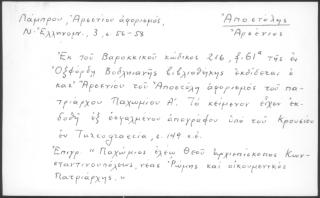 Λάμπρου, Ἀρσενίου ἀφορισμός,
Ἀποστόλης
Ἀρσένιος
Ν. Ἑλληνομν., 3, σ. 56-58
Ἐκ τοῦ Βαροκκικοῦ κώδικος 216, f. 61ᵃ τῆς ἐν
Ὀξφόρδῃ Βοδληιανῆς βιβλιοθήκης ἐκδίδεται ὁ
κατ' Ἀρσενίου τοῦ Ἀποστόλη ἀφορισμὸς τοῦ πα-
τριάρχου Παχωμίου Α'. Τὸ κείμενον εἶχεν ἐκ-
δοθῆ ἐξ ἐσφαλμένου ἀπογράφου ὑπὸ τοῦ Κρουσίου
ἐν Turcograecia, σ. 149 κ.ἑ.
Ἐπιγρ. "Παχώμιος ἐλέῳ Θεοῦ ἀρχιεπίσκοπος Κων-
σταντινουπόλεως, νέας Ῥώμης καὶ οἰκουμενικὸς
Πατριάρχης."